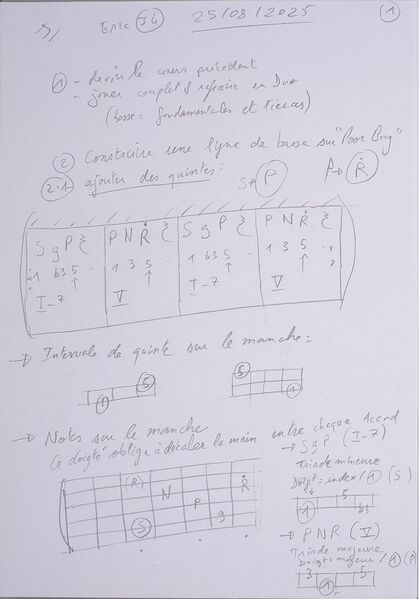 Eric J4 25/08/2025 1
1 - devoir le cours précédent
- jouer couplet & refrain en Duo
(basse = fondamentales et tierces)
2 Construire une ligne de basse sur "Poor Boy"
2.1 ajouter des quintes : S→P P→Ṙ
S g P P N Ṙ S g P P N Ṙ
1 b3 5 - 1 3 5 - 1 b3 5 - 1 3 5
↑ ↑ ↑ ↑
I-7 V I-7 V
→ Intervale de quinte sur le manche :
5 5
1 1
→ Notes sur le manche
Ce doigté oblige à décaler la main entre chaque Accord
→ S g P (I-7)
Triade mineure
Doigt = index / 1 (S)
(R) N P Ṙ
S g
5
1 b3
→ P N R (V)
Triade majeure
Doigt = majeur / 1 (P)
3 5
1